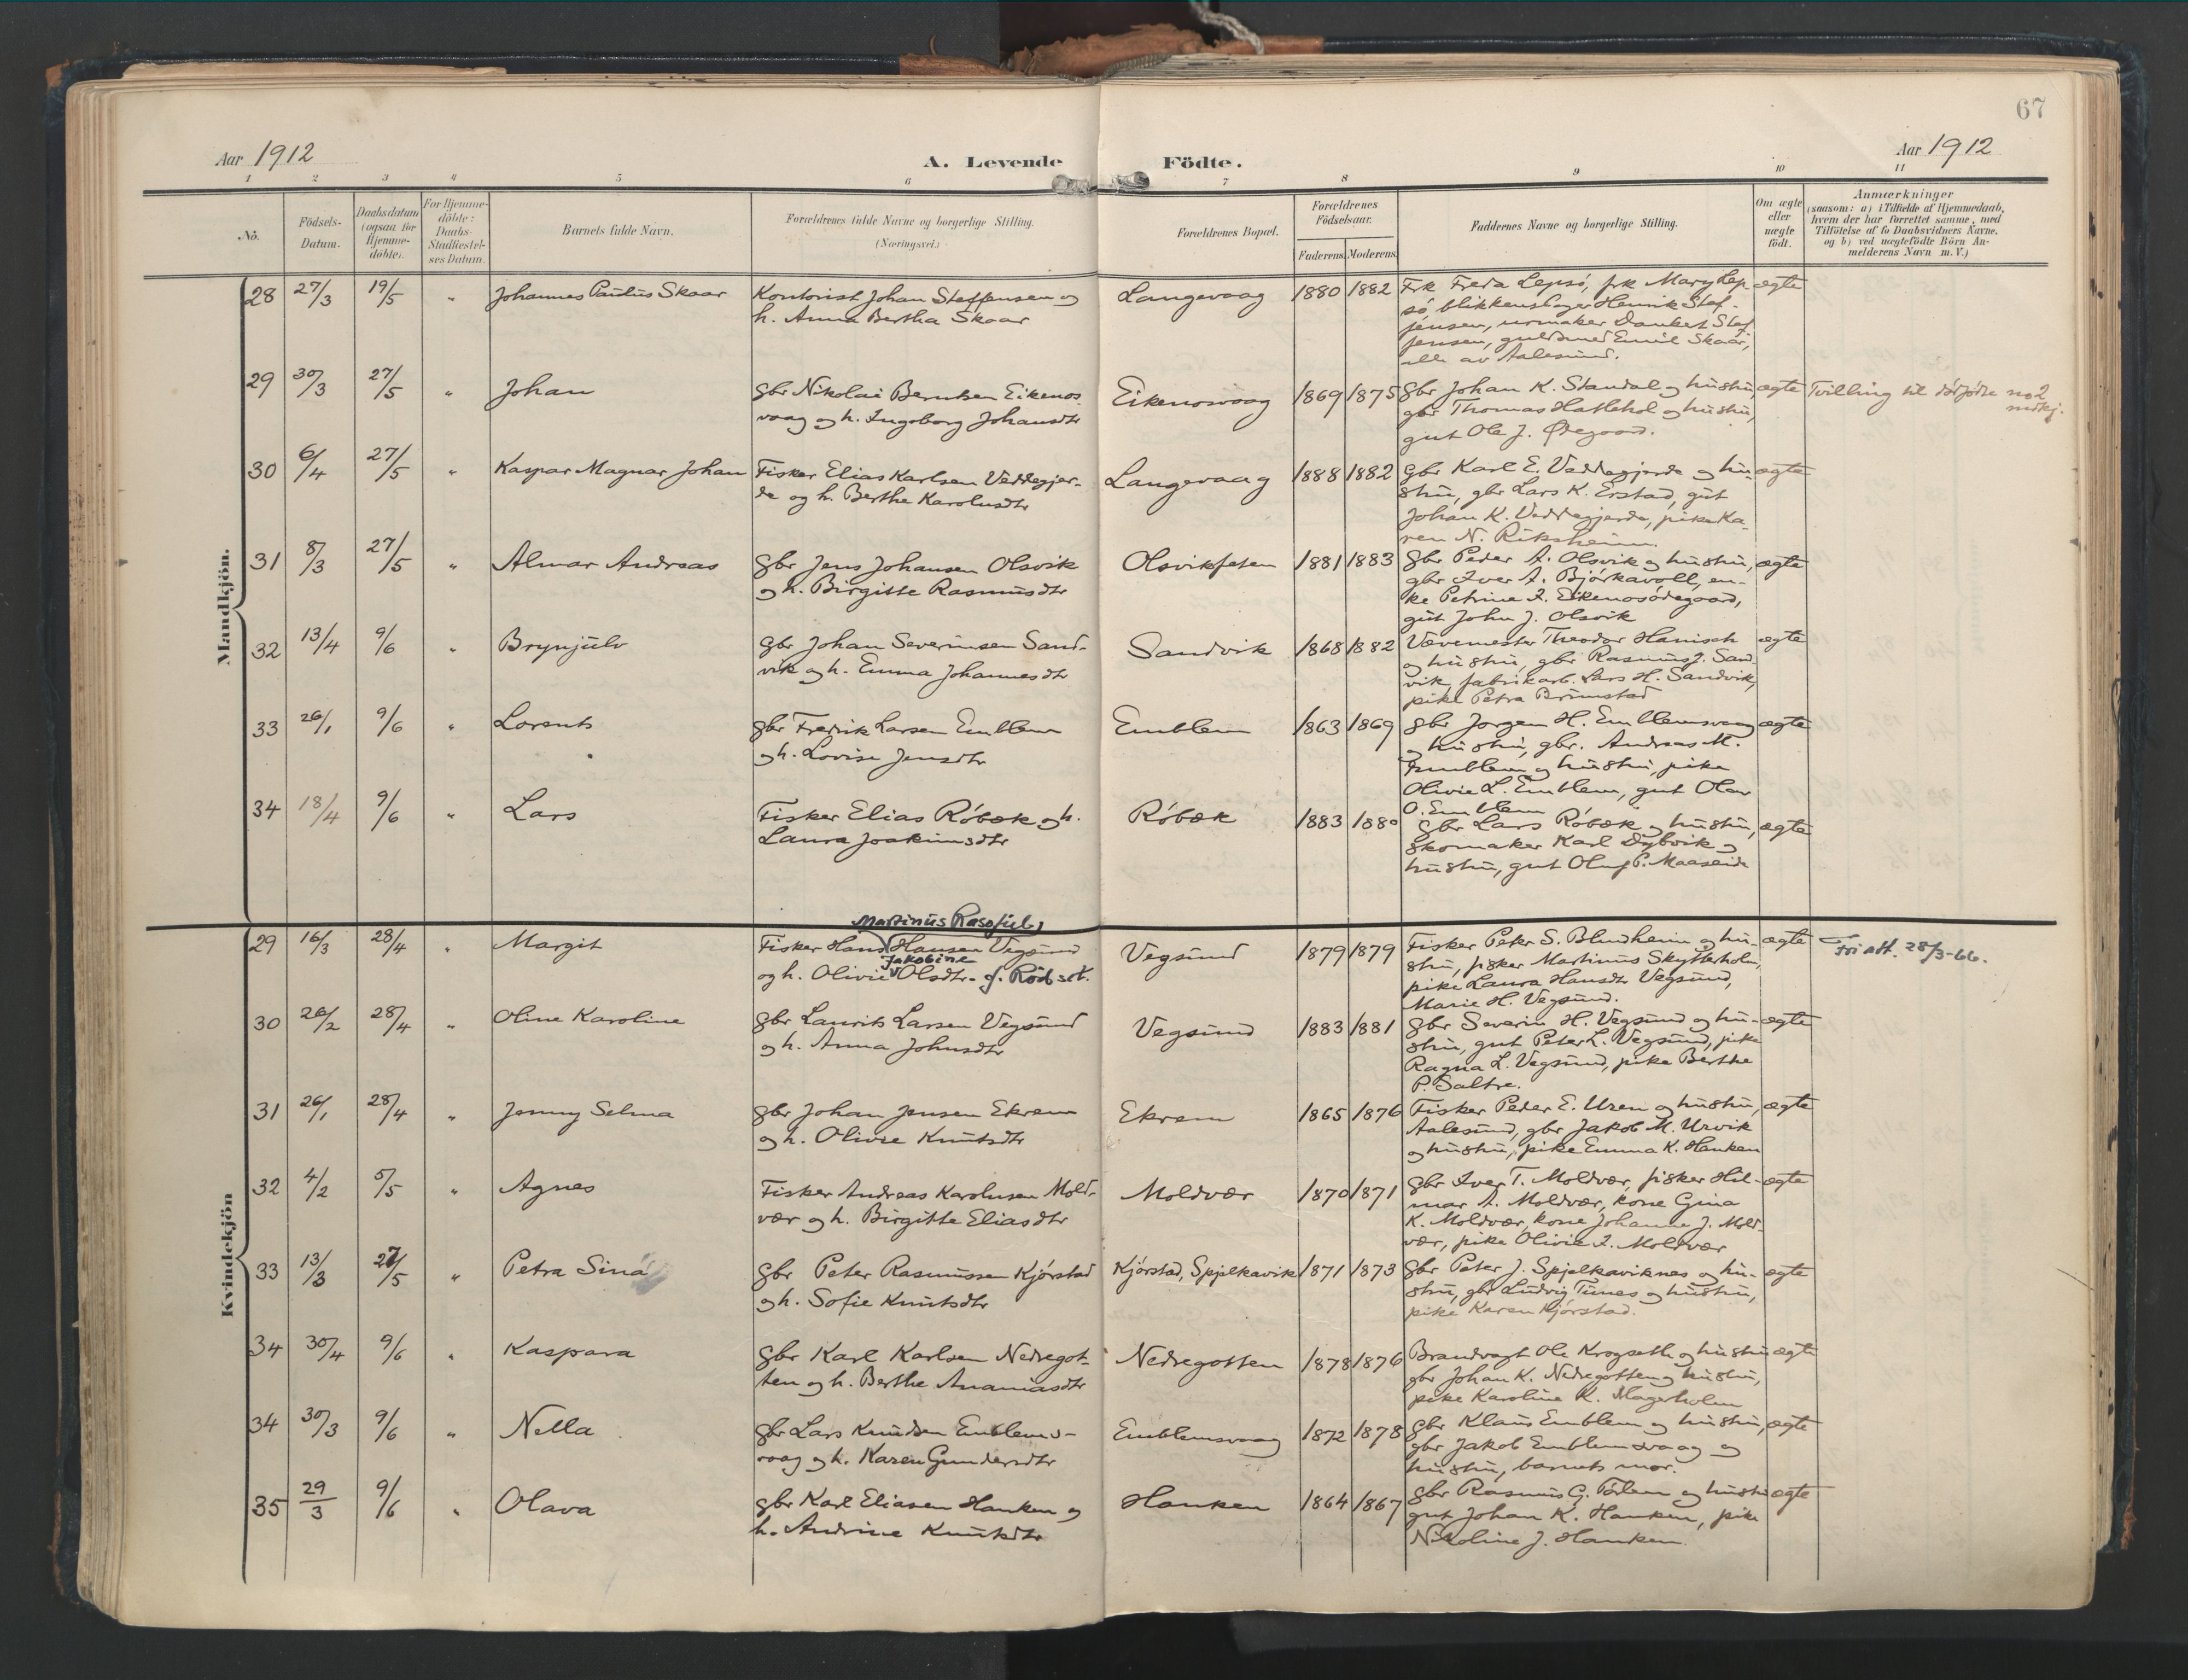 67
Aar 1912
A. Levende Födte.
Aar 1912
1 2 3 4 5 6 7 8 9 10 11
No.
Födsels-
Datum.
Daabsdatum
(ogsaa for
Hjemme-
döbte).
For Hjemme-
döbte:
Daabs-
Stadfæstel-
ses Datum.
Barnets fulde Navn.
Forældrenes fulde Navne og borgerlige Stilling.
(Næringsvei.)
Forældrenes Bopæl.
Forældrenes
Födselsaar.
Faderens. Moderens.
Faddernes Navne og borgerlige Stilling.
Om ægte
eller
uægte
födt.
Anmærkninger
(saasom: a) i Tilfælde af Hjemmedaab,
hvem der har forrettet samme, med
Tilföielse af to Daabsvidners Navne,
og b) ved uægtefödte Börn An-
melderens Navn m. V.)
Mandkjön.
28 27/3 19/5 " Johannes Paulus Skaar
Kontorist Johan Steffensen og
h. Anna Bertha Skaar
Langevaag 1880 1882
Frk Freda Lepsö, frk Mary Lep-
sö, blikkenslager Henrik Stef-
fensen, urmaker Dankert Stef-
fensen, guldsmed Emil Skaar,
alle av Aalesund.
ægte
29 30/3 27/5 " Johan
Gbr Nikolai Berntsen Eikenos-
vaag og h. Ingeborg Johansdtr
Eikenosvaag 1869 1875
Gbr Johan K. Standal og hustru,
gbr Thomas Hatlehol og hustru,
gut Ole J. Ødegaard.
ægte
Tvilling til dödfödte no 2
mdkj.
30 6/4 27/5 " Kaspar Magnar Johan
Fisker Elias Karlsen Veddegjer-
de og h. Berthe Karolusdtr
Langevaag 1888 1882
Gbr Karl E. Veddegjerde og hu-
stru, gbr Lars K. Erstad, gut
Johan K. Veddegjerde, pike Ka-
ren N. Riksheim.
ægte
31 8/3 27/5 " Almar Andreas
Gbr Jens Johansen Olsvik
og h. Birgitte Rasmusdtr
Olsvikfeten 1881 1883
Gbr Peder A. Olsvik og hustru,
gbr Iver A. Björkavoll, en-
ke Petrine I. Eikenosödegaard,
gut John J. Olsvik
ægte
32 13/4 9/6 " Brynjulv
Gbr Johan Severinsen Sand-
vik og h. Emma Johannesdtr
Sandvik 1868 1882
Vævemester Theodor Hanisch
og hustru, gbr Rasmus J. Sand-
vik, fabrikarb. Lars H. Sandvik,
pike Petra Brunstad
ægte
33 26/1 9/6 " Lorents
Gbr Fredrik Larsen Emblem
og h. Lovise Jensdtr
Emblem 1863 1869
Gbr Jørgen H. Emblemsvaag
og hustru, gbr. Andreas M.
Emblem og hustru, pike
Olivie L. Emblem, gut Olav
O. Emblem
ægte
34 18/4 9/6 " Lars
Fisker Elias Röbæk og h.
Laura Joakimsdtr
Röbæk 1883 1880
Gbr Lars Röbæk og hustru,
skomaker Karl Dybvik og
hustru, gut Oluf P. Maaseide
ægte
Kvindekjön
29 16/3 28/4 " Margit
Martinus Rasofiub,
Fisker Hans Hansen Vegsund
Jakobine
og h. Olivie Olsdtr. f. Rödset.
Vegsund 1879 1879
Fisker Peter S. Blindheim og hu-
stru, fisker Martinus Skytterholm,
pike Laura Hansdtr Vegsund,
Marie H. Vegsund.
ægte
Fri att. 28/3-66.
30 26/2 28/4 " Oline Karoline
Gbr Laurits Larsen Vegsund
og h. Anna Johnsdtr
Vegsund 1883 1881
Gbr Severin H. Vegsund og hu-
stru, gut Peter L. Vegsund, pike
Ragna L. Vegsund, pike Berthe
P. Saltre.
ægte
31 26/1 28/4 " Jenny Selma
Gbr Johan Jensen Ekrem
og h. Olivie Knutsdtr
Ekrem 1865 1876
Fisker Peder E. Uren og hustru,
Aalesund, gbr Jakob M. Urvik
og hustru, pike Emma K. Hanken
ægte
32 4/2 5/5 " Agnes
Fisker Andreas Karolusen Mold-
vær og h. Birgitte Eliasdtr
Moldvær 1870 1871
Gbr Iver T. Moldvær, fisker Hil-
mar A. Moldvær, kone Gina
K. Moldvær, kone Johanne J. Mold-
vær, pike Olivie I. Moldvær
ægte
33 13/3 27/5 " Petra Sina
Gbr Peter Rasmussen Kjörstad
og h. Sofie Knutsdtr
Kjörstad, Spjelkavik 1871 1873
Gbr Peter J. Spjelkaviknes og hu-
stru, gbr Ludvig Tunes og hustru,
pike Karen Kjörstad.
ægte
34 30/4 9/6 " Kaspara
Gbr Karl Karlsen Nedregot-
ten og h. Berthe Ananiasdtr
Nedregotten 1878 1876
Brandvagt Ole Krogseth og hustru
gbr Johan K. Nedregotten og hustru,
pike Karoline K. Magerholm
ægte
34 30/3 9/6 " Nella
Gbr Lars Knudsen Emblems-
vaag og h. Karen Gundersdtr
Emblemsvaag 1872 1878
Gbr Klaus Emblem og hustru,
gbr Jakob Emblemsvaag og
hustru, barnets mor.
ægte
35 29/3 9/6 " Olava
Gbr Karl Eliasen Hanken og
h. Andrine Knutsdtr
Hanken 1864 1867
Gbr Rasmus G. Törlen og hustru
gut Johan K. Hanken, pike
Nikoline J. Hanken.
ægte